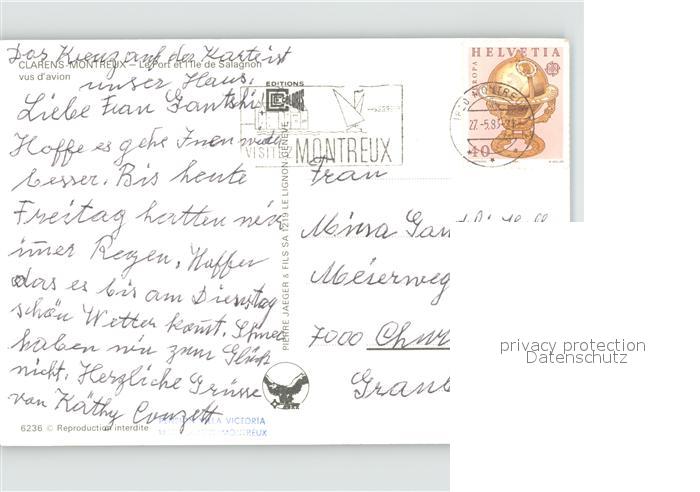 Das Kreuz auf der Karte ist
CLARENS-MONTREUX – Le Port et l'Ile de Salagnon
vus d'avion
unser Haus.
Liebe Frau
Hoffe es gehe Inen wieder
besser. Bis heute
Freitag hatten wir
imer Regen. Hoffen
das es bis am Dienstag
schön Wetter komt. Schnee
haben wir zum Glück
nicht. Herzliche Grüsse
von Käthy
6236 © Reproduction interdite
EDITIONS
VISITEZ MONTREUX
PIERRE JAEGER & FILS SA 1219 LE LIGNON-GENÈVE
VILLA VICTORIA
MONTREUX
HELVETIA
EUROPA
1820 MONTREUX
27.-5.83
40
Frau
7000 Chur
privacy protection
Datenschutz